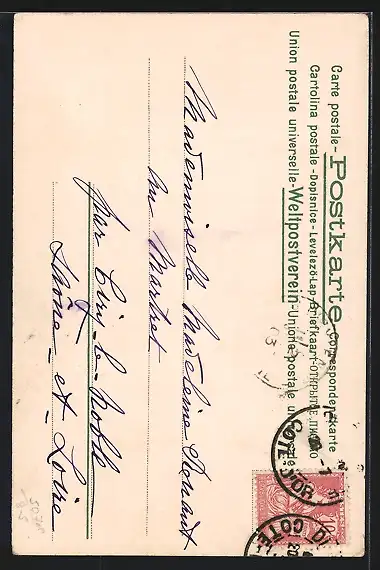 Carte postale - Postkarte - Correspondenzkarte
Cartolina postale - Dopisnice - Levelező-Lap - Briefkaart - ОТКРЫТОЕ ПИСЬМО
Union postale universelle - Weltpostverein - Unione postale universale
Mademoiselle Madeleine
au Martret
par Ciry-le-Noble
Saône-et-Loire
COTE D'OR
COTE